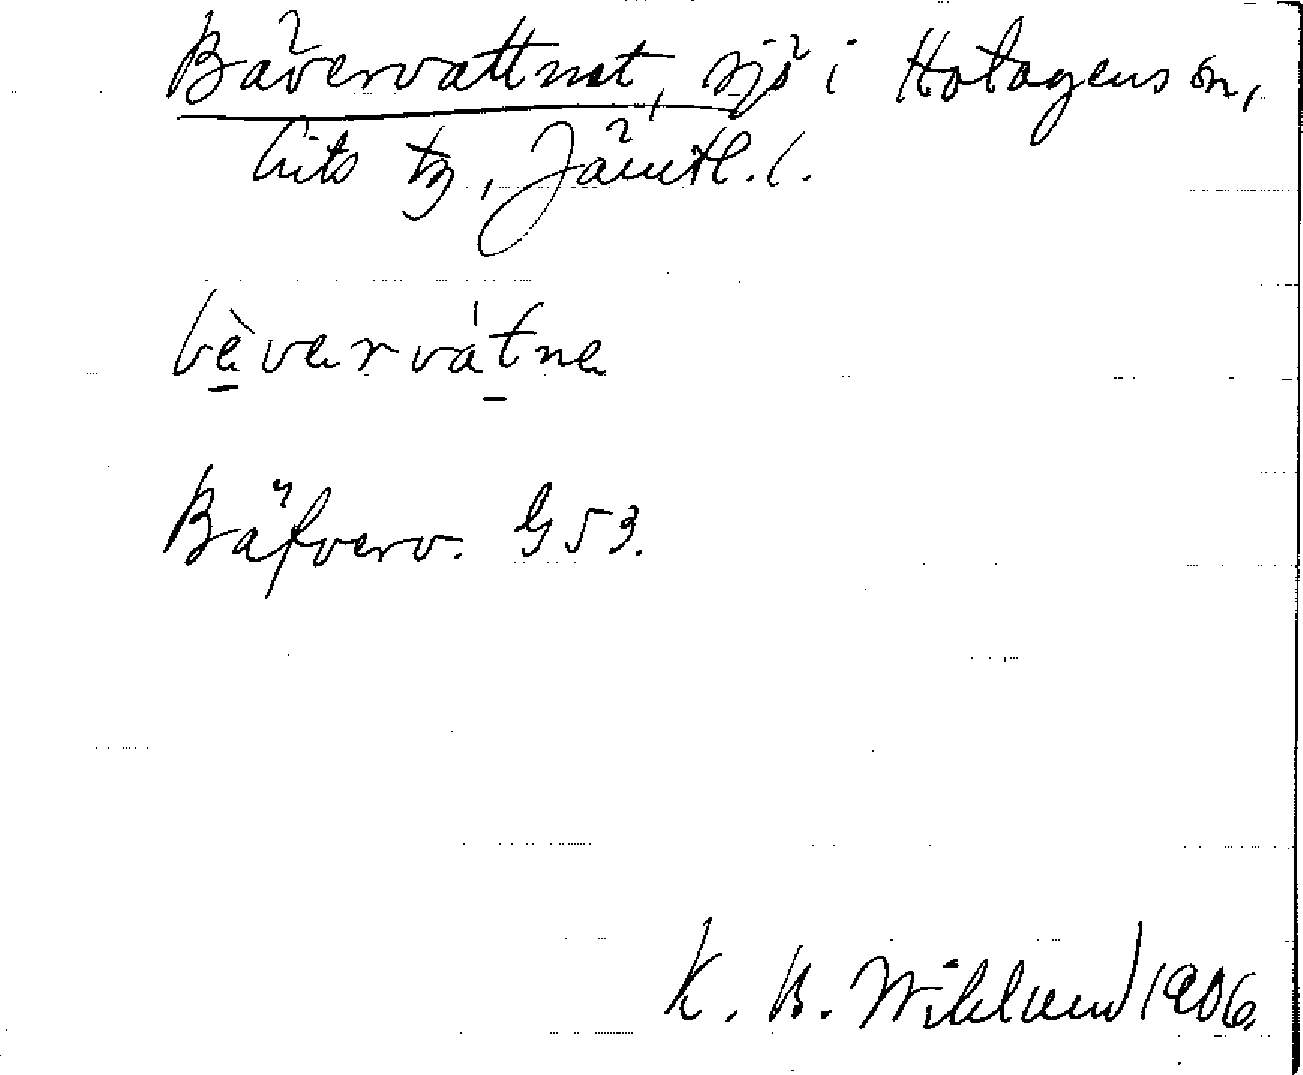 Bävervattnet, sjö i Hotagens sn,
Lits tg, Jämtl. l.
bèvarvátna
Bäfverv. G 53.
K. B. Wiklund 1906.